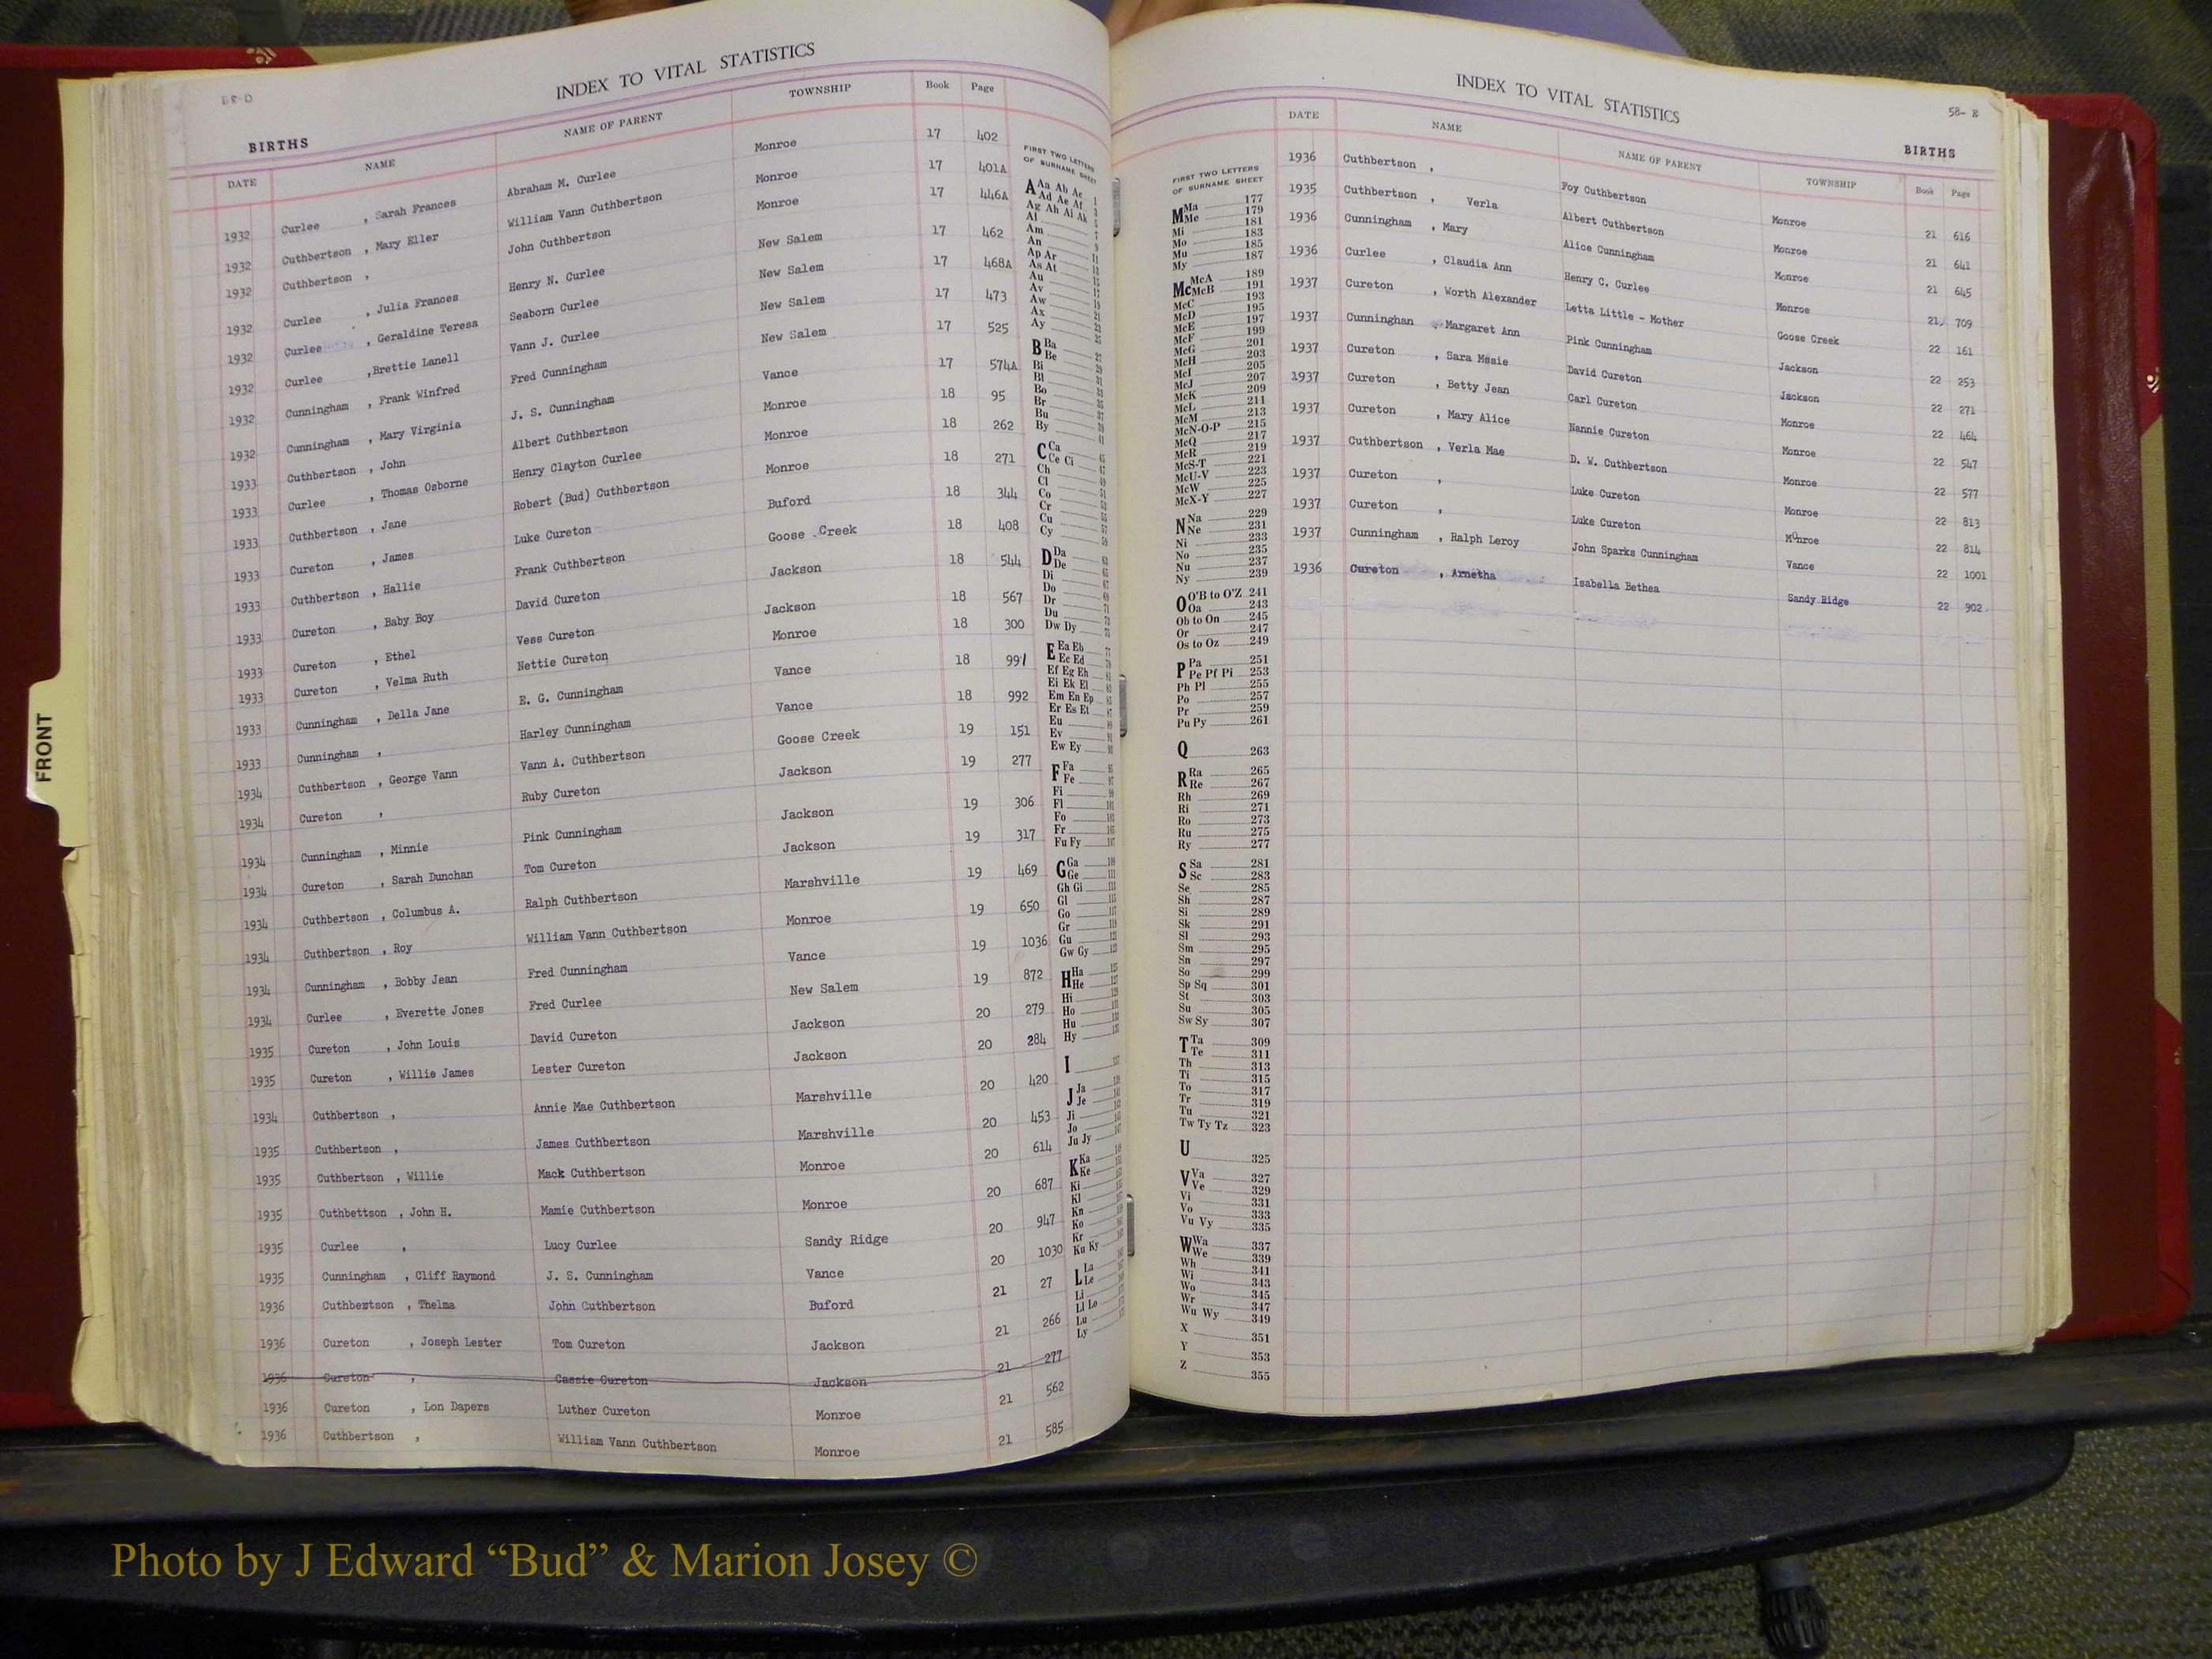 58-D
INDEX TO VITAL STATISTICS
BIRTHS
DATE NAME NAME OF PARENT TOWNSHIP Book Page
1932 Curlee , Sarah Frances Abraham M. Curlee Monroe 17 402
1932 Cuthbertson , Mary Eller William Vann Cuthbertson Monroe 17 401A
1932 Cuthbertson , John Cuthbertson Monroe 17 446A
1932 Curlee , Julia Frances Henry N. Curlee New Salem 17 462
1932 Curlee , Geraldine Teresa Seaborn Curlee New Salem 17 468A
1932 Curlee ,Brettie Lanell Vann J. Curlee New Salem 17 473
1932 Cunningham , Frank Winfred Fred Cunningham New Salem 17 525
1932 Cunningham , Mary Virginia J. S. Cunningham Vance 17 574A
1933 Cuthbertson , John Albert Cuthbertson Monroe 18 95
1933 Curlee , Thomas Osborne Henry Clayton Curlee Monroe 18 262
1933 Cuthbertson , Jane Robert (Bud) Cuthbertson Monroe 18 271
1933 Cureton , James Luke Cureton Buford 18 344
1933 Cuthbertson , Hallie Frank Cuthbertson Goose Creek 18 408
1933 Cureton , Baby Boy David Cureton Jackson 18 544
1933 Cureton , Ethel Vess Cureton Jackson 18 567
1933 Cureton , Velma Ruth Nettie Cureton Monroe 18 300
1933 Cunningham , Della Jane E. G. Cunningham Vance 18 991
1933 Cunningham , Harley Cunningham Vance 18 992
1934 Cuthbertson , George Vann Vann A. Cuthbertson Goose Creek 19 151
1934 Cureton , Ruby Cureton Jackson 19 277
1934 Cunningham , Minnie Pink Cunningham Jackson 19 306
1934 Cureton , Sarah Dunchan Tom Cureton Jackson 19 317
1934 Cuthbertson , Columbus A. Ralph Cuthbertson Marshville 19 469
1934 Cuthbertson , Roy William Vann Cuthbertson Monroe 19 650
1934 Cunningham , Bobby Jean Fred Cunningham Vance 19 1036
1934 Curlee , Everette Jones Fred Curlee New Salem 19 872
1935 Cureton , John Louis David Cureton Jackson 20 279
1935 Cureton , Willie James Lester Cureton Jackson 20 284
1934 Cuthbertson , Annie Mae Cuthbertson Marshville 20 420
1935 Cuthbertson , James Cuthbertson Marshville 20 453
1935 Cuthbertson , Willie Mack Cuthbertson Monroe 20 614
1935 Cuthbettson , John H. Mamie Cuthbertson Monroe 20 687
1935 Curlee , Lucy Curlee Sandy Ridge 20 947
1935 Cunningham , Cliff Raymond J. S. Cunningham Vance 20 1030
1936 Cuthbertson , Thelma John Cuthbertson Buford 21 27
1936 Cureton , Joseph Lester Tom Cureton Jackson 21 266
1936 Cureton , Cassie Cureton Jackson 21 277
1936 Cureton , Lon Dapers Luther Cureton Monroe 21 562
1936 Cuthbertson , William Vann Cuthbertson Monroe 21 585
FIRST TWO LETTERS
OF SURNAME SHEET
A Aa Ab Ac 1
Ad Ae Af 3
Ag Ah Ai Ak
Al
Am
An
Ap Ar
As At
Au
Av
Aw
Ax
Ay
B Ba
Be
Bi
Bl
Bo
Br
Bu
By
C Ca
Ce Ci
Ch
Cl
Co
Cr
Cu
Cy
D Da
De
Di
Do
Dr
Du
Dw Dy
E Ea Eb
Ec Ed
Ef Eg Eh
Ei Ek El
Em En Ep
Er Es Et
Eu
Ev
Ew Ey
F Fa
Fe
Fi
Fl
Fo
Fr
Fu Fy
G Ga
Ge
Gh Gi
Gl
Go
Gr
Gu
Gw Gy
H Ha
He
Hi
Ho
Hu
Hy
I
J Ja
Je
Ji
Jo
Ju Jy
K Ka
Ke
Ki
Kl
Kn
Ko
Kr
Ku Ky
L La
Le
Li
Ll Lo
Lu
Ly
FRONT
INDEX TO VITAL STATISTICS
58- E
BIRTHS
DATE NAME NAME OF PARENT TOWNSHIP Book Page
1936 Cuthbertson , Foy Cuthbertson Monroe 21 616
1935 Cuthbertson , Verla Albert Cuthbertson Monroe 21 641
1936 Cunningham , Mary Alice Cunningham Monroe 21 645
1936 Curlee , Claudia Ann Henry C. Curlee Monroe 21 709
1937 Cureton , Worth Alexander Letta Little - Mother Goose Creek 22 161
1937 Cunninghan , Margaret Ann Pink Cunningham Jackson 22 253
1937 Cureton , Sara Mssie David Cureton Jackson 22 271
1937 Cureton , Betty Jean Carl Cureton Monroe 22 464
1937 Cureton , Mary Alice Nannie Cureton Monroe 22 547
1937 Cuthbertson , Verla Mae D. W. Cuthbertson Monroe 22 577
1937 Cureton , Luke Cureton Monroe 22 813
1937 Cureton , Luke Cureton Monroe 22 814
1937 Cunningham , Ralph Leroy John Sparks Cunningham Vance 22 1001
1936 Cureton , Arnetha Isabella Bethea Sandy Ridge 22 902
FIRST TWO LETTERS
OF SURNAME SHEET
M Ma 177
Me 179
Mi 181
Mo 183
Mu 185
My 187
Mc McA 189
McB 191
McC 193
McD 195
McE 197
McF 199
McG 201
McH 203
McI 205
McJ 207
McK 209
McL 211
McM 213
McN-O-P 215
McQ 217
McR 219
McS-T 221
McU-V 223
McW 225
McX-Y 227
N Na 229
Ne 231
Ni 233
No 235
Nu 237
Ny 239
O O'B to O'Z 241
Oa 243
Ob to On 245
Or 247
Os to Oz 249
P Pa 251
Pe Pf Pi 253
Ph Pl 255
Po 257
Pr 259
Pu Py 261
Q 263
R Ra 265
Re 267
Rh 269
Ri 271
Ro 273
Ru 275
Ry 277
S Sa 281
Sc 283
Se 285
Sh 287
Si 289
Sk 291
Sl 293
Sm 295
Sn 297
So 299
Sp Sq 301
St 303
Su 305
Sw Sy 307
T Ta 309
Te 311
Th 313
Ti 315
To 317
Tr 319
Tu 321
Tw Ty Tz 323
U 325
V Va 327
Ve 329
Vi 331
Vo 333
Vu Vy 335
W Wa 337
We 339
Wh 341
Wi 343
Wo 345
Wr 347
Wu Wy 349
X 351
Y 353
Z 355
Photo by J Edward “Bud” & Marion Josey ©